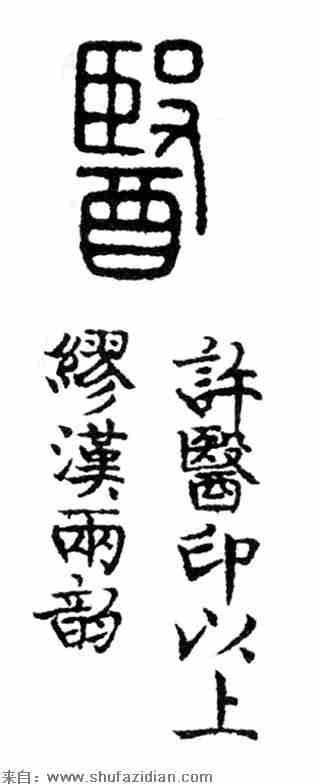 醫
許醫印以上
繆漢兩韵
来自：www.shufazidian.com